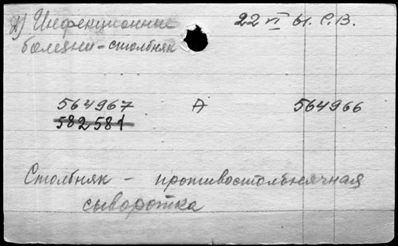 2) Инфекционные 22 VI 61. С.В.
болезни - столбняк
564967 А 564966
582581
Столбняк - противостолбнячная
сыворотка